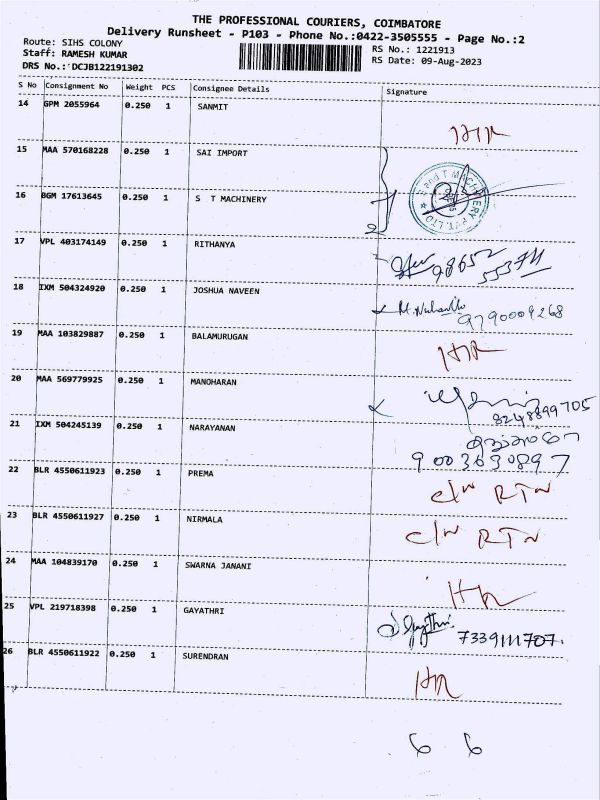 THE PROFESSIONAL COURIERS, COIMBATORE
Delivery Runsheet - P103 - Phone No.:0422-3505555 - Page No.:2
Route: SIHS COLONY
Staff: RAMESH KUMAR
DRS No.: DCJB122191302
RS No.: 1221913
RS Date: 09-Aug-2023
S No Consignment No Weight PCS Consignee Details Signature
14 GPM 2055964 0.250 1 SANMIT
15 MAA 570168228 0.250 1 SAI IMPORT
16 BGM 17613645 0.250 1 S T MACHINERY
17 VPL 403174149 0.250 1 RITHANYA
98652
55371
18 IXM 504324920 0.250 1 JOSHUA NAVEEN
9790009268
19 MAA 103829887 0.250 1 BALAMURUGAN
20 MAA 569779925 0.250 1 MANOHARAN
8248899705
21 IXM 504245139 0.250 1 NARAYANAN
9003630897
22 BLR 4550611923 0.250 1 PREMA C/N RTN
23 BLR 4550611927 0.250 1 NIRMALA C/N RTN
24 MAA 104839170 0.250 1 SWARNA JANANI
25 VPL 219718398 0.250 1 GAYATHRI Gayathri 7339111707.
26 BLR 4550611922 0.250 1 SURENDRAN
6 6